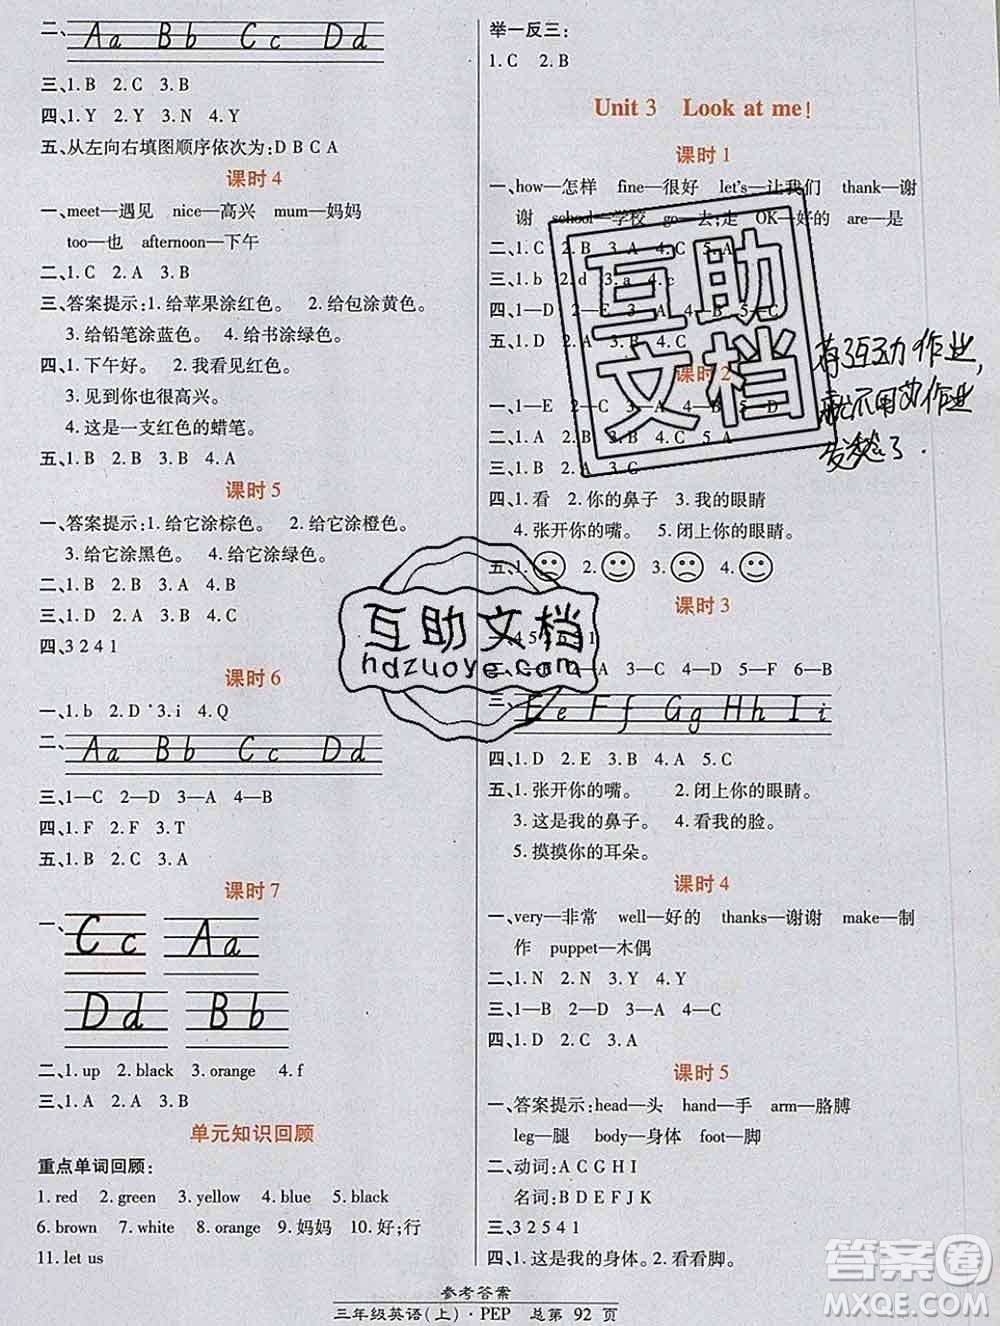 二、 Aa Bb Cc Dd
三、1.B 2.C 3.B
四、1.Y 2.Y 3.N 4.Y
五、从左向右填图顺序依次为:D B C A
课时 4
一、meet—遇见 nice—高兴 mum—妈妈
too—也 afternoon—下午
二、1.C 2.A 3.B
三、答案提示:1.给苹果涂红色。 2.给包涂黄色。
3.给铅笔涂蓝色。 4.给书涂绿色。
四、1.下午好。 2.我看见红色。
3.见到你也很高兴。
4.这是一支红色的蜡笔。
五、1.B 2.B 3.B 4.A
课时 5
一、答案提示:1.给它涂棕色。 2.给它涂橙色。
3.给它涂黑色。 4.给它涂绿色。
二、1.B 2.B 3.A 4.B
三、1.B 2.A 3.B 4.C
四、3 2 4 1
课时 6
一、1.b 2.D 3.i 4.Q
二、 Aa Bb Cc Dd
三、1—C 2—D 3—A 4—B
四、1.F 2.F 3.T
五、1.B 2.C 3.A
课时 7
一、 Cc Aa
Dd Bb
二、1.up 2.black 3.orange 4.f
三、1.A 2.A 3.B
单元知识回顾
重点单词回顾:
1.red 2.green 3.yellow 4.blue 5.black
6.brown 7.white 8.orange 9.妈妈 10.好;行
11.let us
举一反三:
1.C 2.B
Unit 3 Look at me!
课时 1
一、how—怎样 fine—很好 let's—让我们 thank—谢
谢 school—学校 go—去;走 OK—好的 are—是
二、1.C 2.B 3.A 4.C 5.A
三、1.b 2.d 3.a 4.c
四、1—D 2—A 3—E 4—B 5—C
五、1.D
课时 2
一、1—E 2—C 3—A 4—B 5—D
二、1.A 2.B
三、1.B 2.A 3.C
四、1.看 2.你的鼻子 3.我的眼睛
4.张开你的嘴。 5.闭上你的眼睛。
五、1. 2. 3. 4.
课时 3
三、 Ee Ff Gg Hh Ii
3—C 4—D 5—A 6—B
四、1.D 2.E 3.B 4.A 5.C
五、1.张开你的嘴。 2.闭上你的眼睛。
3.这是我的鼻子。 4.看我的脸。
5.摸摸你的耳朵。
课时 4
一、very—非常 well—好的 thanks—谢谢 make—制
作 puppet—木偶
二、1.N 2.N 3.Y 4.Y
三、1—B 2—D 3—A 4—C
四、1.D 2.C 3.B 4.A
课时 5
一、答案提示:head—头 hand—手 arm—胳膊
leg—腿 body—身体 foot—脚
二、动词:A C G H I
名词:B D E F J K
三、3 2 5 4 1
四、1.这是我的身体。2.看看脚。
参考答案
三年级英语(上)·PEP 总第 92 页
互助文档
有了互助作业,
就不用为作业
发愁了.
互助文档
hdzuoye.com
答案圈
MXQE.COM